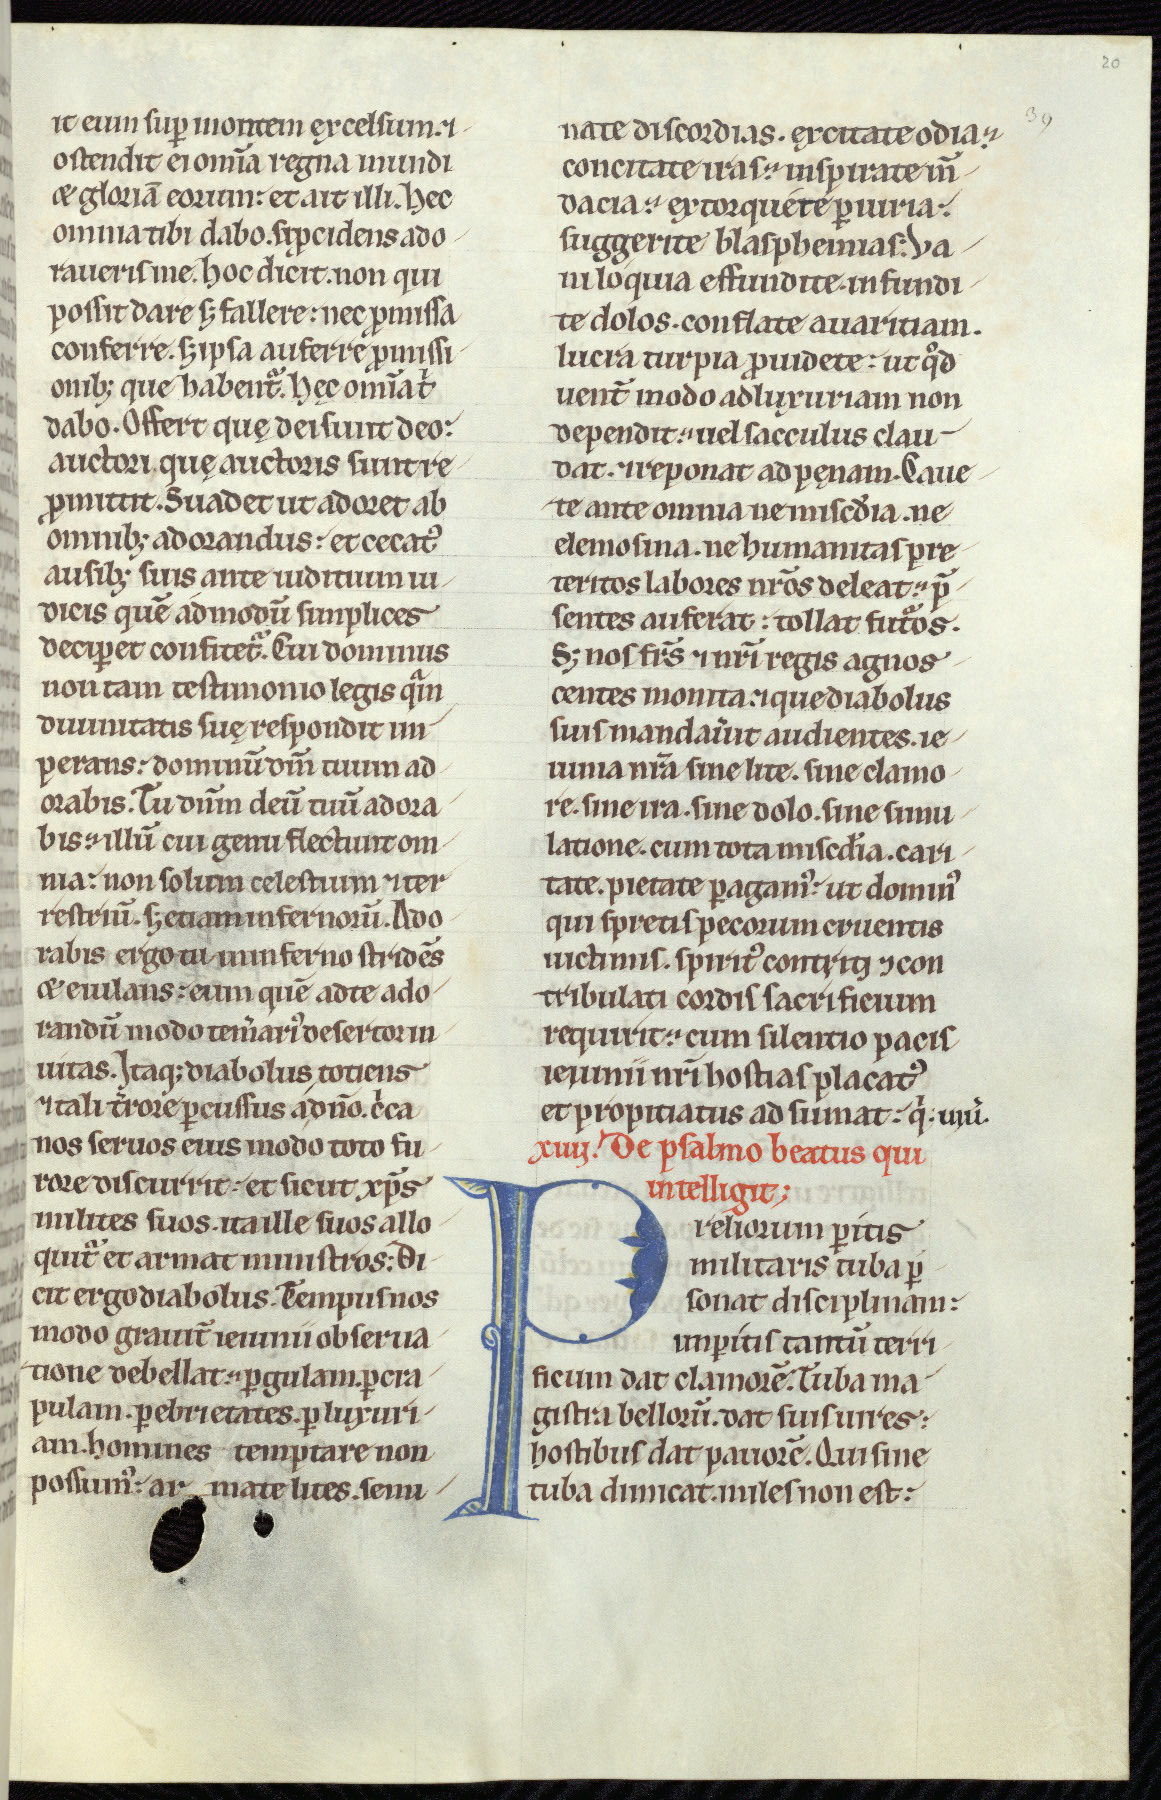 20
39
it eum sup̄ montem excelsum. ⁊
ostendit ei om̄ia regna mundi
& gloriā eorum: et ait illi. Hec
omnia tibi dabo. si p̱cidens ado
raueris me. hoc dicit. non qui
possit dare sȝ fallere: nec p̱missa
conferre. sȝ ipsa auferre p̱missi
onibȝ que habent᷑. Hęc om̄ia t̄
dabo. Offert quę dei sunt deo:
auctori quę auctoris sunt re
p̱mittit. Suadet ut adoret ab
omnibȝ adorandus: et cecatꝰ
ausibȝ suis ante iuditium iu
dicis quē admodū simplices
decip̱et confitet᷑. Cui dominus
non tam testimonio legis q̄m
diuinitatis suę respondit im
perans: dominū dm̄ tuum ad
orabis. Tu dn̄m deū tuū adora
bis: illū cui genu flectunt om
nia: non solum celestium ⁊ ter
restriū. sȝ etiam infernorū. Ado
rabis ergo tu in inferno stridēs
& eiulans: eum quē ad te ado
randū modo tem̄ariꝰ desertor in
uitas. Itaqȝ diabolus totiens
⁊ tali t̄rore p̱cussus a dn̄o. c̄ca
nos seruos eius modo toto fu
rore discurrit: et sicut xp̄s
milites suos. ita ille suos allo
quit᷑ et armat ministros: Di
cit ergo diabolus. Tempus nos
modo grauit̄ ieiunii obserua
tione debellat: p̱ gulam. p̱ cra
pulam. p̱ ebrietates. p̱ luxuri
am. homines temptare non
possumꝰ: ar mate lites. semi
nate discordias. excitate odia:
concitate iras: inspirate m̄
dacia: extorquete p̱iuria:
suggerite blasphemias: Va
niloquia effundite. infundi
te dolos. conflate auaritiam.
lucra turpia p̱uidete: ut qd̄
uent̄ modo ad luxuriam non
dependit: uel sacculus clau
dat. ⁊ reponat ad pęnam. Caue
te ante omnia ne misc̄dia. ne
elemosina. ne humanitas pre
teritos labores nr̄os deleat: p̄
sentes auferat: tollat fut᷑os.
Sȝ nos fr̄s ⁊ nr̄i regis agnos
centes monita: ⁊ que diabolus
suis mandau̅it audientes. ie
iunia nr̄a sine lite. sine clamo
re. sine ira. sine dolo. sine simu
latione. cum tota misc̄dia. cari
tate. pietate p̱agamꝰ: ut dominꝰ
qui spretis pecorum cruentis
uictimis. spiritꝰ contriti ⁊ con
tribulati cordis sacrificium
requirit: cum silentio pacis
ieiunii nr̄i hostias placatꝰ
et propitiatus adsumat: q̄. uiu̅.
xiiij. De psalmo beatus qui
intelligit;
Preliorum p̱itis
militaris tuba p̱
sonat disciplinam:
inp̱itis tantū terri
ficum dat clamorē. Tuba ma
gistra bellorū. dat suis uires:
hostibus dat pauorē. Qui sine
tuba dimicat. miles non est: